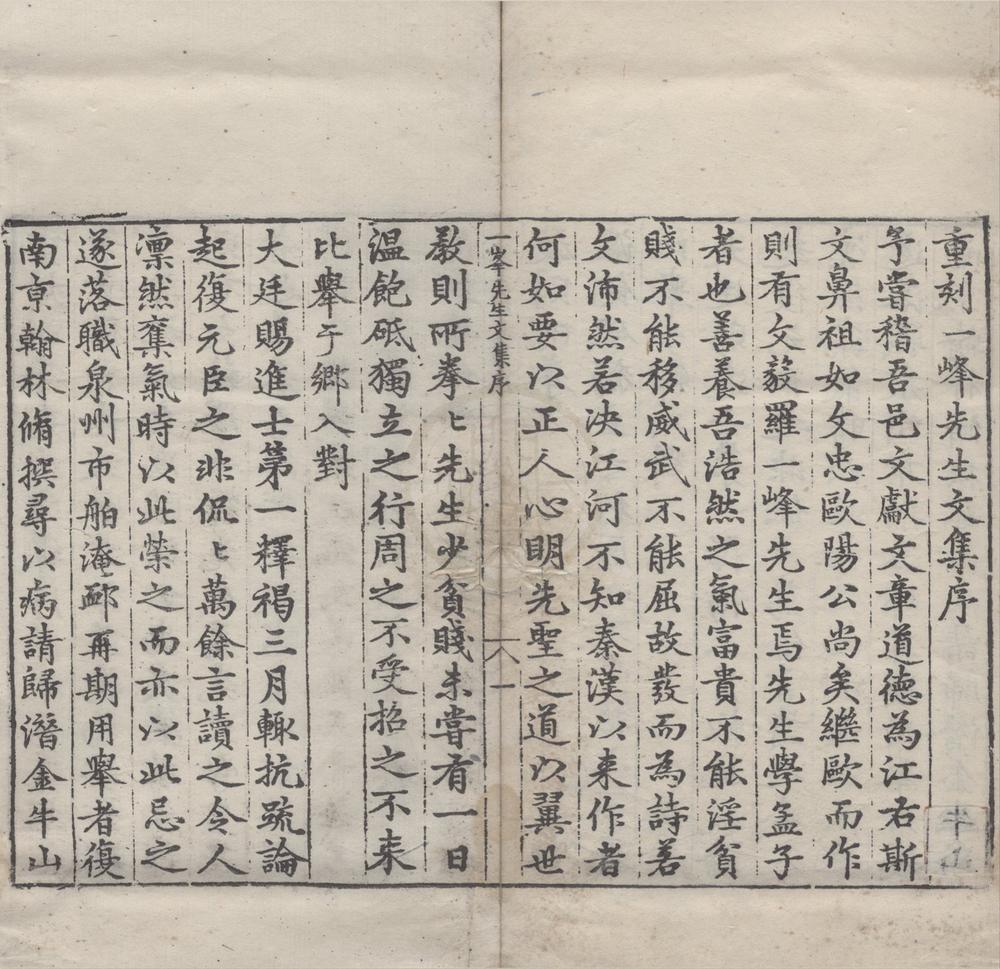 重刻一峰先生文集序
予嘗稽吾邑文獻文章道德為江右斯
文鼻祖如文忠歐陽公尚矣繼歐而作
則有文毅羅一峰先生焉先生學孟子
者也善養吾浩然之氣富貴不能淫貧
賤不能移威武不能屈故發而為詩若
文沛然若決江河不知秦漢以来作者
何如要以正人心明先聖之道以翼世
一峯先生文集序
八 一
教則所拳〻先生少貧賤未嘗有一日
温飽砥獨立之行周之不受招之不来
比舉于鄉入對
大廷賜進士第一釋褐三月輙抗䟽論
起復元臣之非侃〻萬餘言讀之令人
凛然奮氣時以此榮之而亦以此忌之
遂落職泉州市舶淹䣛再期用舉者復
南京翰林脩撰尋以病請歸潛金牛山